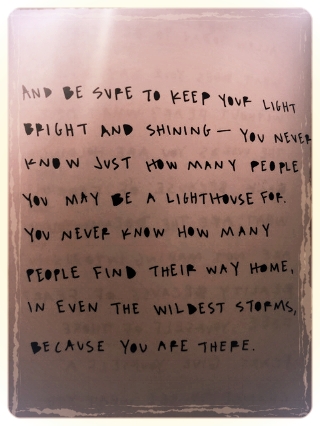 AND BE SURE TO KEEP YOUR LIGHT
BRIGHT AND SHINING — YOU NEVER
KNOW JUST HOW MANY PEOPLE
YOU MAY BE A LIGHTHOUSE FOR.
YOU NEVER KNOW HOW MANY
PEOPLE FIND THEIR WAY HOME,
IN EVEN THE WILDEST STORMS,
BECAUSE YOU ARE THERE.